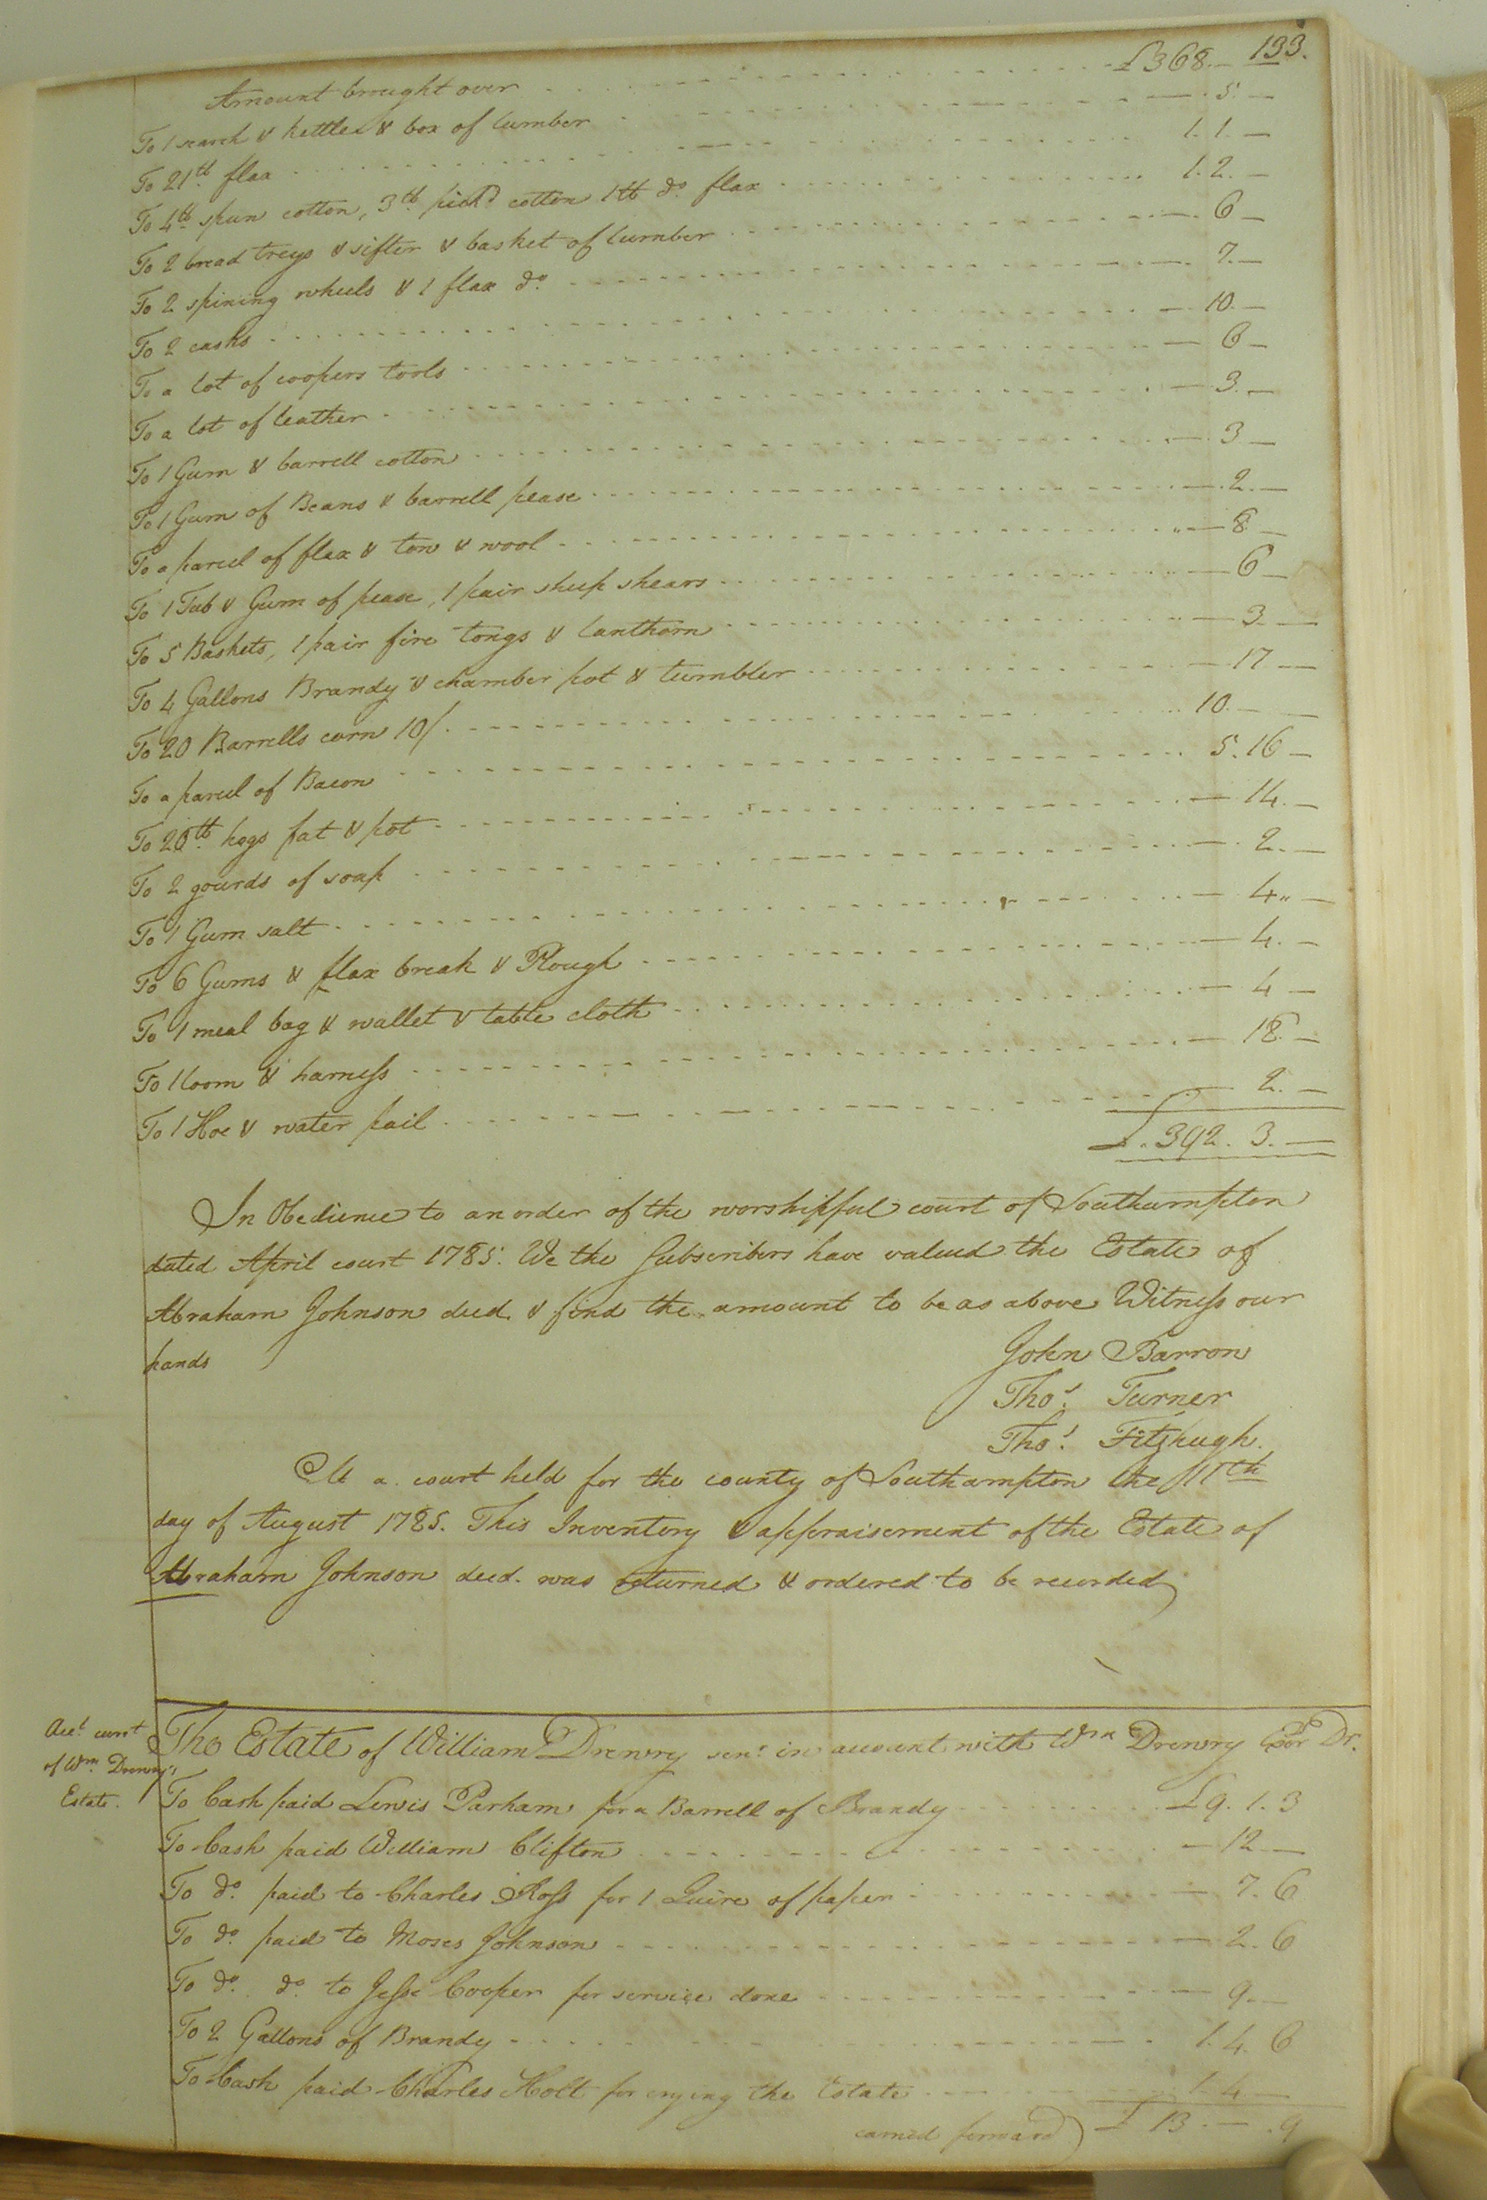 133.
Amount brought over £368.—
To 1 search & kettle & box of lumber — 5. —
To 21lb. flax 1. 1. —
To 4lb. spun cotton, 3lb. pick'd cotton 1lb do. flax 1. 2. —
To 2 bread treys & sifter & basket of lumber — 6 —
To 2 spining wheels & 1 flax do. — 7. —
To 2 casks — 10. —
To a lot of coopers tools — 6 —
To a lot of leather — 3. —
To 1 Gum & barrell cotton — 3 —
To 1 Gum of Beans & barrell pease — 2. —
To a parcel of flax & tow & wool — 8. —
To 1 Tub & Gum of pease, 1 pair sheep shears — 6 —
To 5 Baskets, 1 pair fire tongs & lanthorn — 3. —
To 4 Gallons Brandy & chamber pot & tumbler — 17 —
To 20 Barrells corn 10/. 10. — —
To a parcel of Bacon 5. 16 —
To 20lb. hogs fat & pot — 14. —
To 2 gourds of soap — 2. —
To 1 Gum salt — 4 —
To 6 Gums & flax break & Plough — 4. —
To 1 meal bag & wallet & table cloth — 4 —
To 1 loom & harness — 18. —
To 1 Hoe & water pail — 2. —
£. 392. 3. —
In Obedience to an order of the worshipful court of Southampton
dated April court 1785. We the Subscribers have valued the Estate of
Abraham Johnson decd. & find the amount to be as above Witness our
hands
John Barron
Thos. Turner
Thos. Fitzhugh.
At a court held for the county of Southampton the 11th
day of August 1785. This Inventory & appraisement of the Estate of
Abraham Johnson decd. was returned & ordered to be recorded
Acct. currt
of Wm Drewry's
Estate.
The Estate of William Drewry senr. in account with Wm Drewry Exor Dr.
To Cash paid Lewis Parham for a Barrell of Brandy £9. 1. 3
To Cash paid William Clifton — 12 —
To do. paid to Charles Ross for 1 Quire of paper — 7. 6
To do. paid to Moses Johnson — 2. 6
To do. do. to Jesse Cooper for service done — 9. —
To 2 Gallons of Brandy 1. 4. 6
To Cash paid Charles Holt for crying the Estate 1. 4 —
carried forward £ 13. — . 9